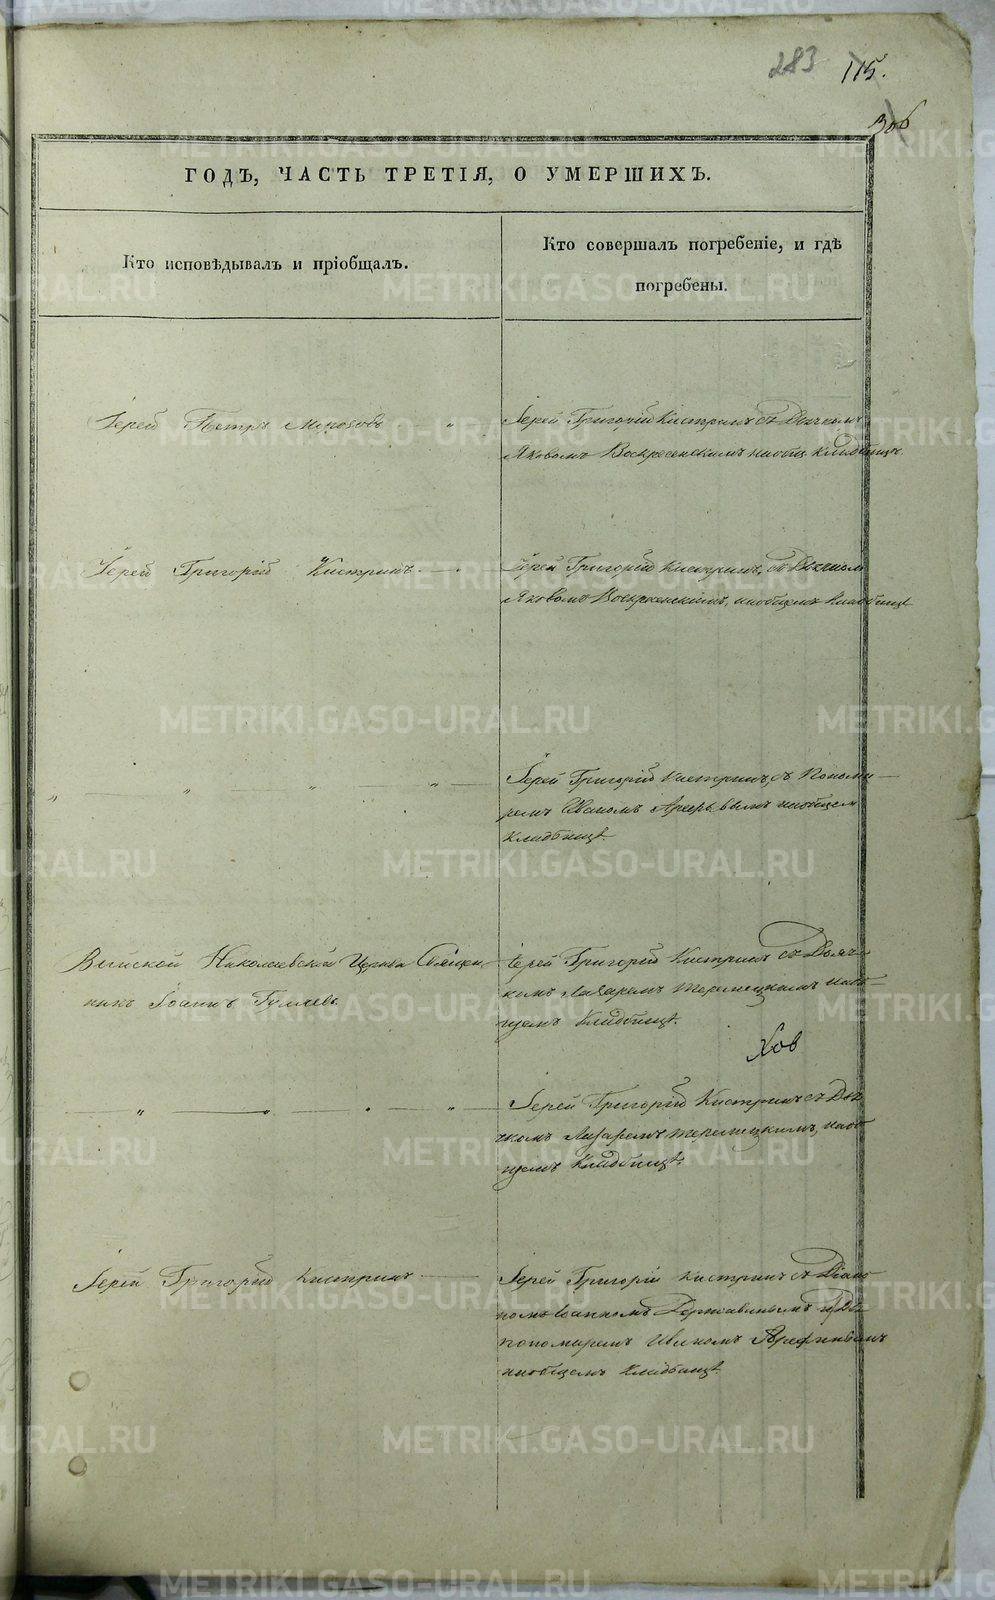 283 115.
306
ГОДЪ, ЧАСТЬ ТРЕТІЯ, О УМЕРШИХЪ.
Кто исповѣдывалъ и пріобщалъ.
Кто совершалъ погребеніе, и гдѣ
погребены.
Іерей Петръ
Іерей Григорій Кистринъ съ Дьячкомъ
Яковомъ Воскресенскимъ наобщ. кладбищѣ.
Іерей Григорій Кистринъ.
Іерей Григорій Кистринъ, съ Дьячкомъ
Яковомъ Воскресенскимъ, наобщемъ кладбищѣ
Іерей Григорій Кистринъ, съ Понома-
ремъ Иваномъ наобщем
Кладбищѣ.
Николаевской Церкви Священ-
никъ Іоаннъ
Іерей Григорій Кистринъ съ Дьяч-
комъ Лазаремъ наоб-
щемъ Кладбищѣ.
Іерей Григорій Кистринъ съ Дья-
чкомъ Лазаремъ наоб-
щемъ Кладбищѣ.
Іерей Григорій Кистринъ
Іерей Григорій Кистринъ съ Діако-
номъ Іоанномъ
пономаремъ Иваномъ
наобщемъ Кладбищѣ.
METRIKI.GASO-URAL.RU